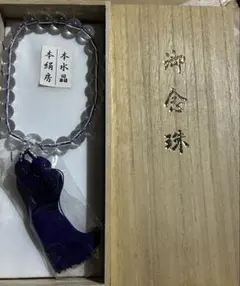 御念珠
本水晶
本絹房